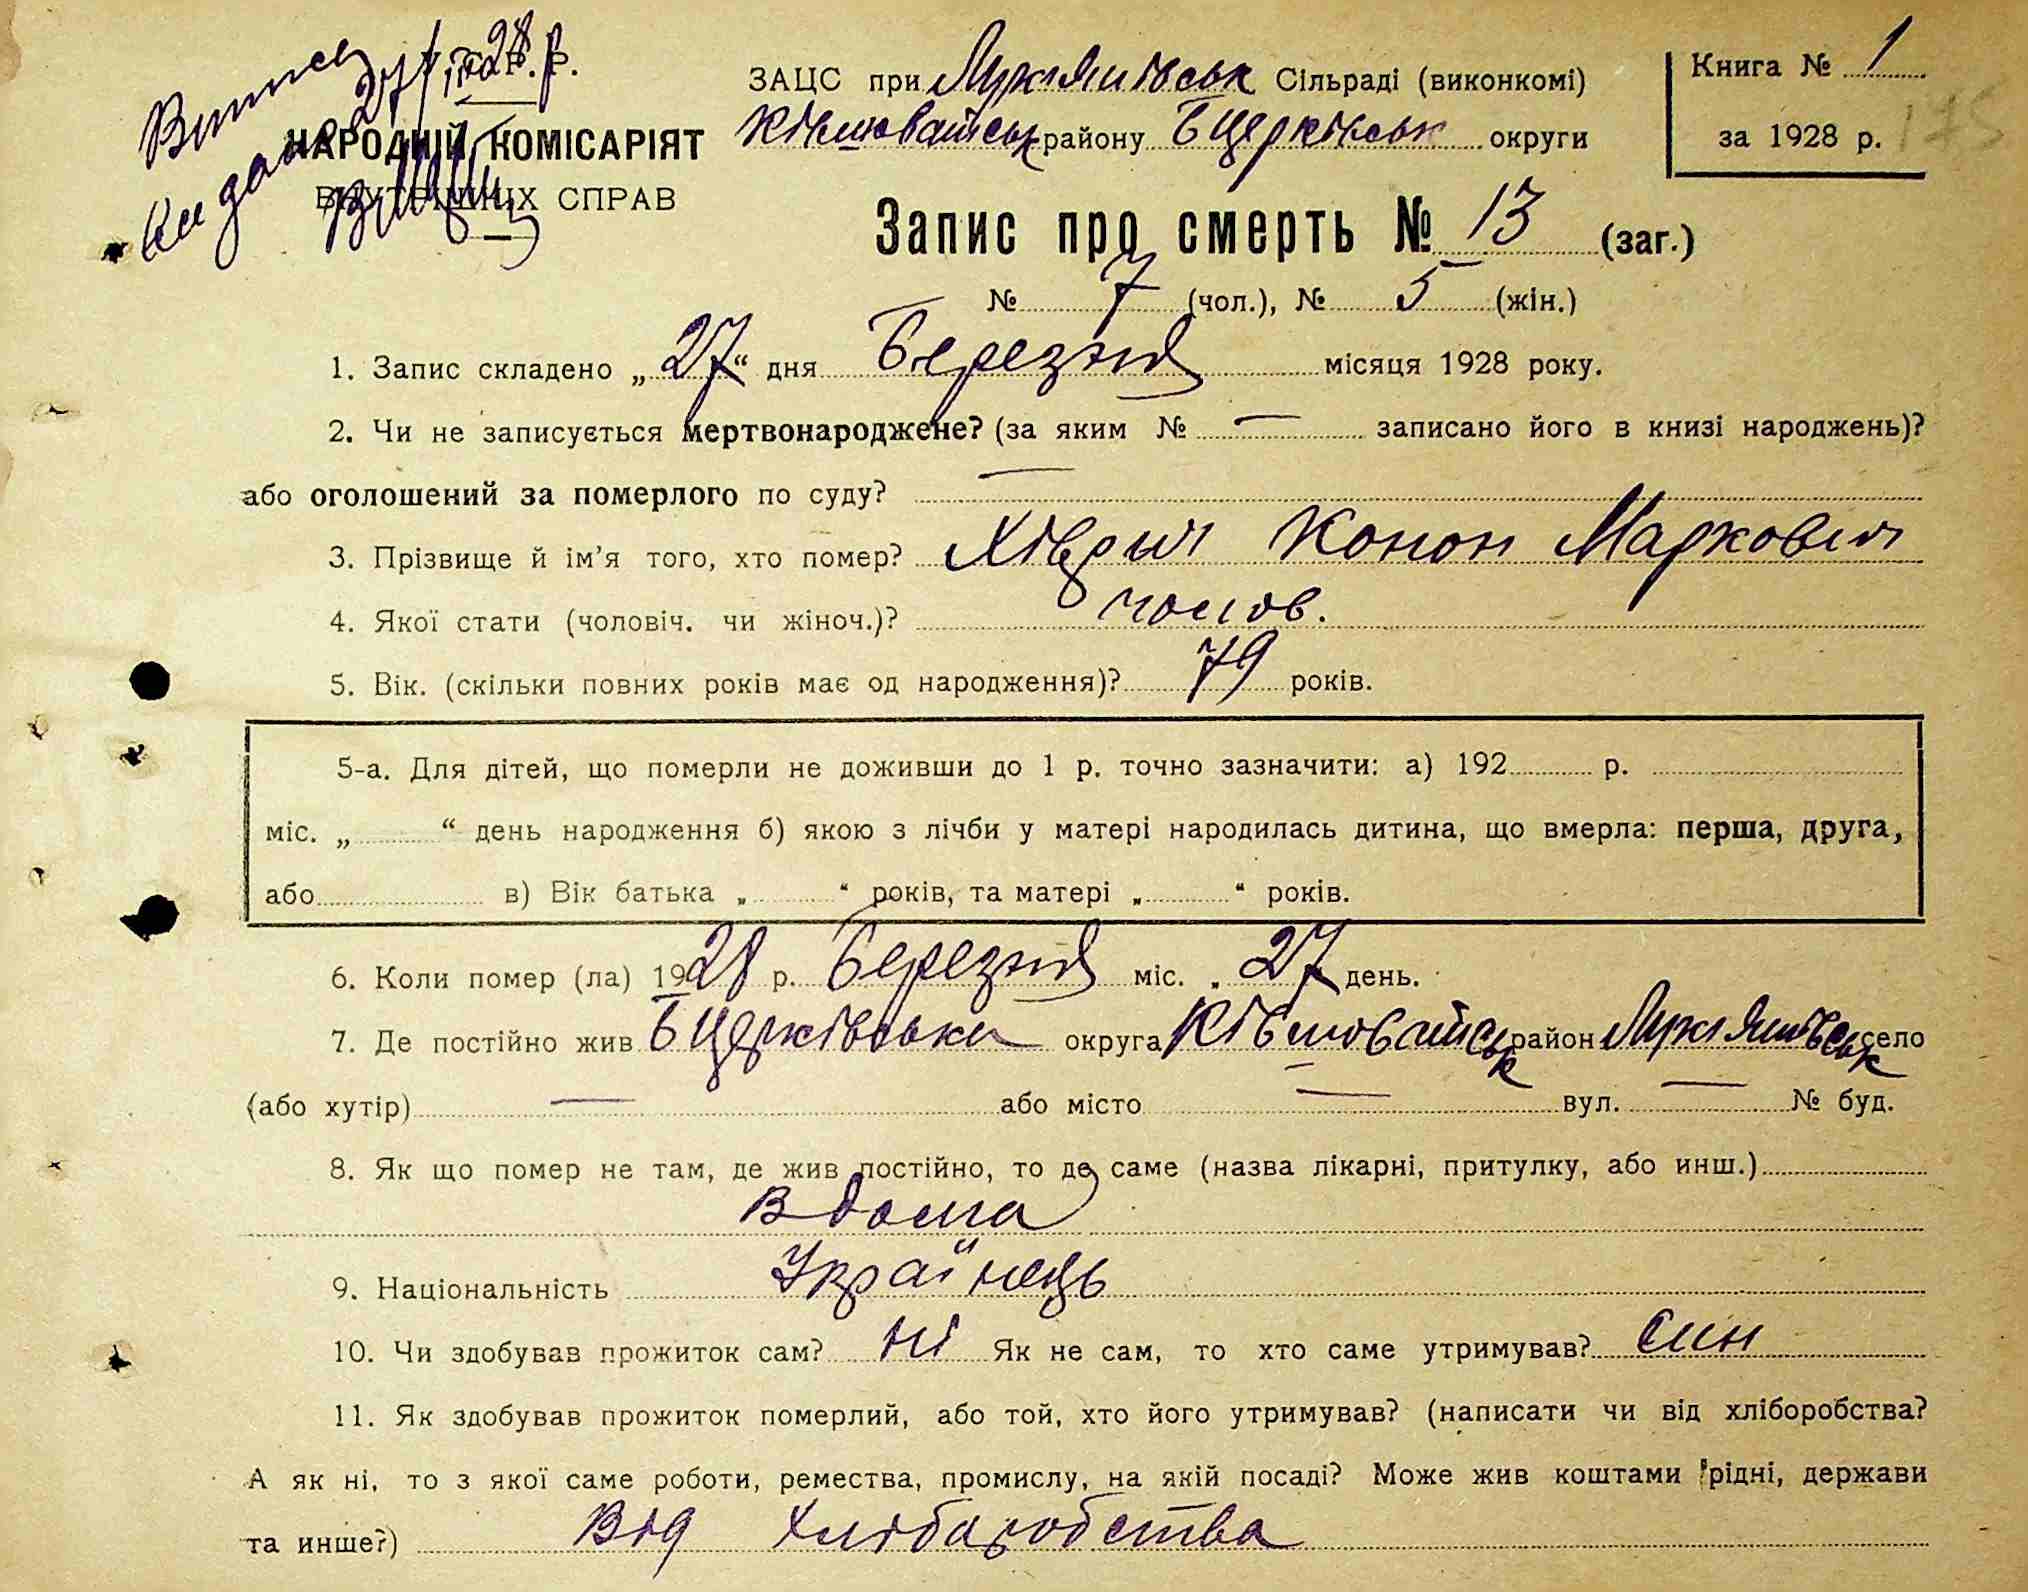 У.С.Р.Р.
НАРОДНІЙ КОМІСАРІЯТ
ВНУТРІШНІХ СПРАВ
27/III 28 р.
ЗАЦС при Лук'янівськ Сільраді (виконкомі)
Ківшоватськ району Б Церківськ округи
Книга № 1
за 1928 р.
175
Запис про смерть № 13 (заг.)
№ 7 (чол.), № 5 (жін.)
1. Запис складено „27“ дня Березня місяця 1928 року.
2. Чи не записується мертвонароджене? (за яким № — записано його в книзі народжень)?
або оголошений за померлого по суду? —
3. Прізвище й ім’я того, хто помер? Хіврич Конон Маркович
4. Якої стати (чоловіч. чи жіноч.)? чолов.
5. Вік. (скільки повних років має од народження)? 79 років.
5-а. Для дітей, що померли не доживши до 1 р. точно зазначити: а) 192 р.
міс. „ “ день народження б) якою з лічби у матері народилась дитина, що вмерла: перша, друга,
або в) Вік батька „ “ років, та матері „ “ років.
6. Коли помер (ла) 1928 р. Березня міс. „ 27 день.
7. Де постійно жив Б Церківська округа Ківшоватськ район Лук'янівськ село
(або хутір) — або місто — вул. — № буд.
8. Як що помер не там, де жив постійно, то де саме (назва лікарні, притулку, або инш.)
вдома
9. Національність Українець
10. Чи здобував прожиток сам? ні Як не сам, то хто саме утримував? син
11. Як здобував прожиток померлий, або той, хто його утримував? (написати чи від хліборобства?
А як ні, то з якої саме роботи, ремества, промислу, на якій посаді? Може жив коштами рідні, держави
та инше?) Від Хліборобства